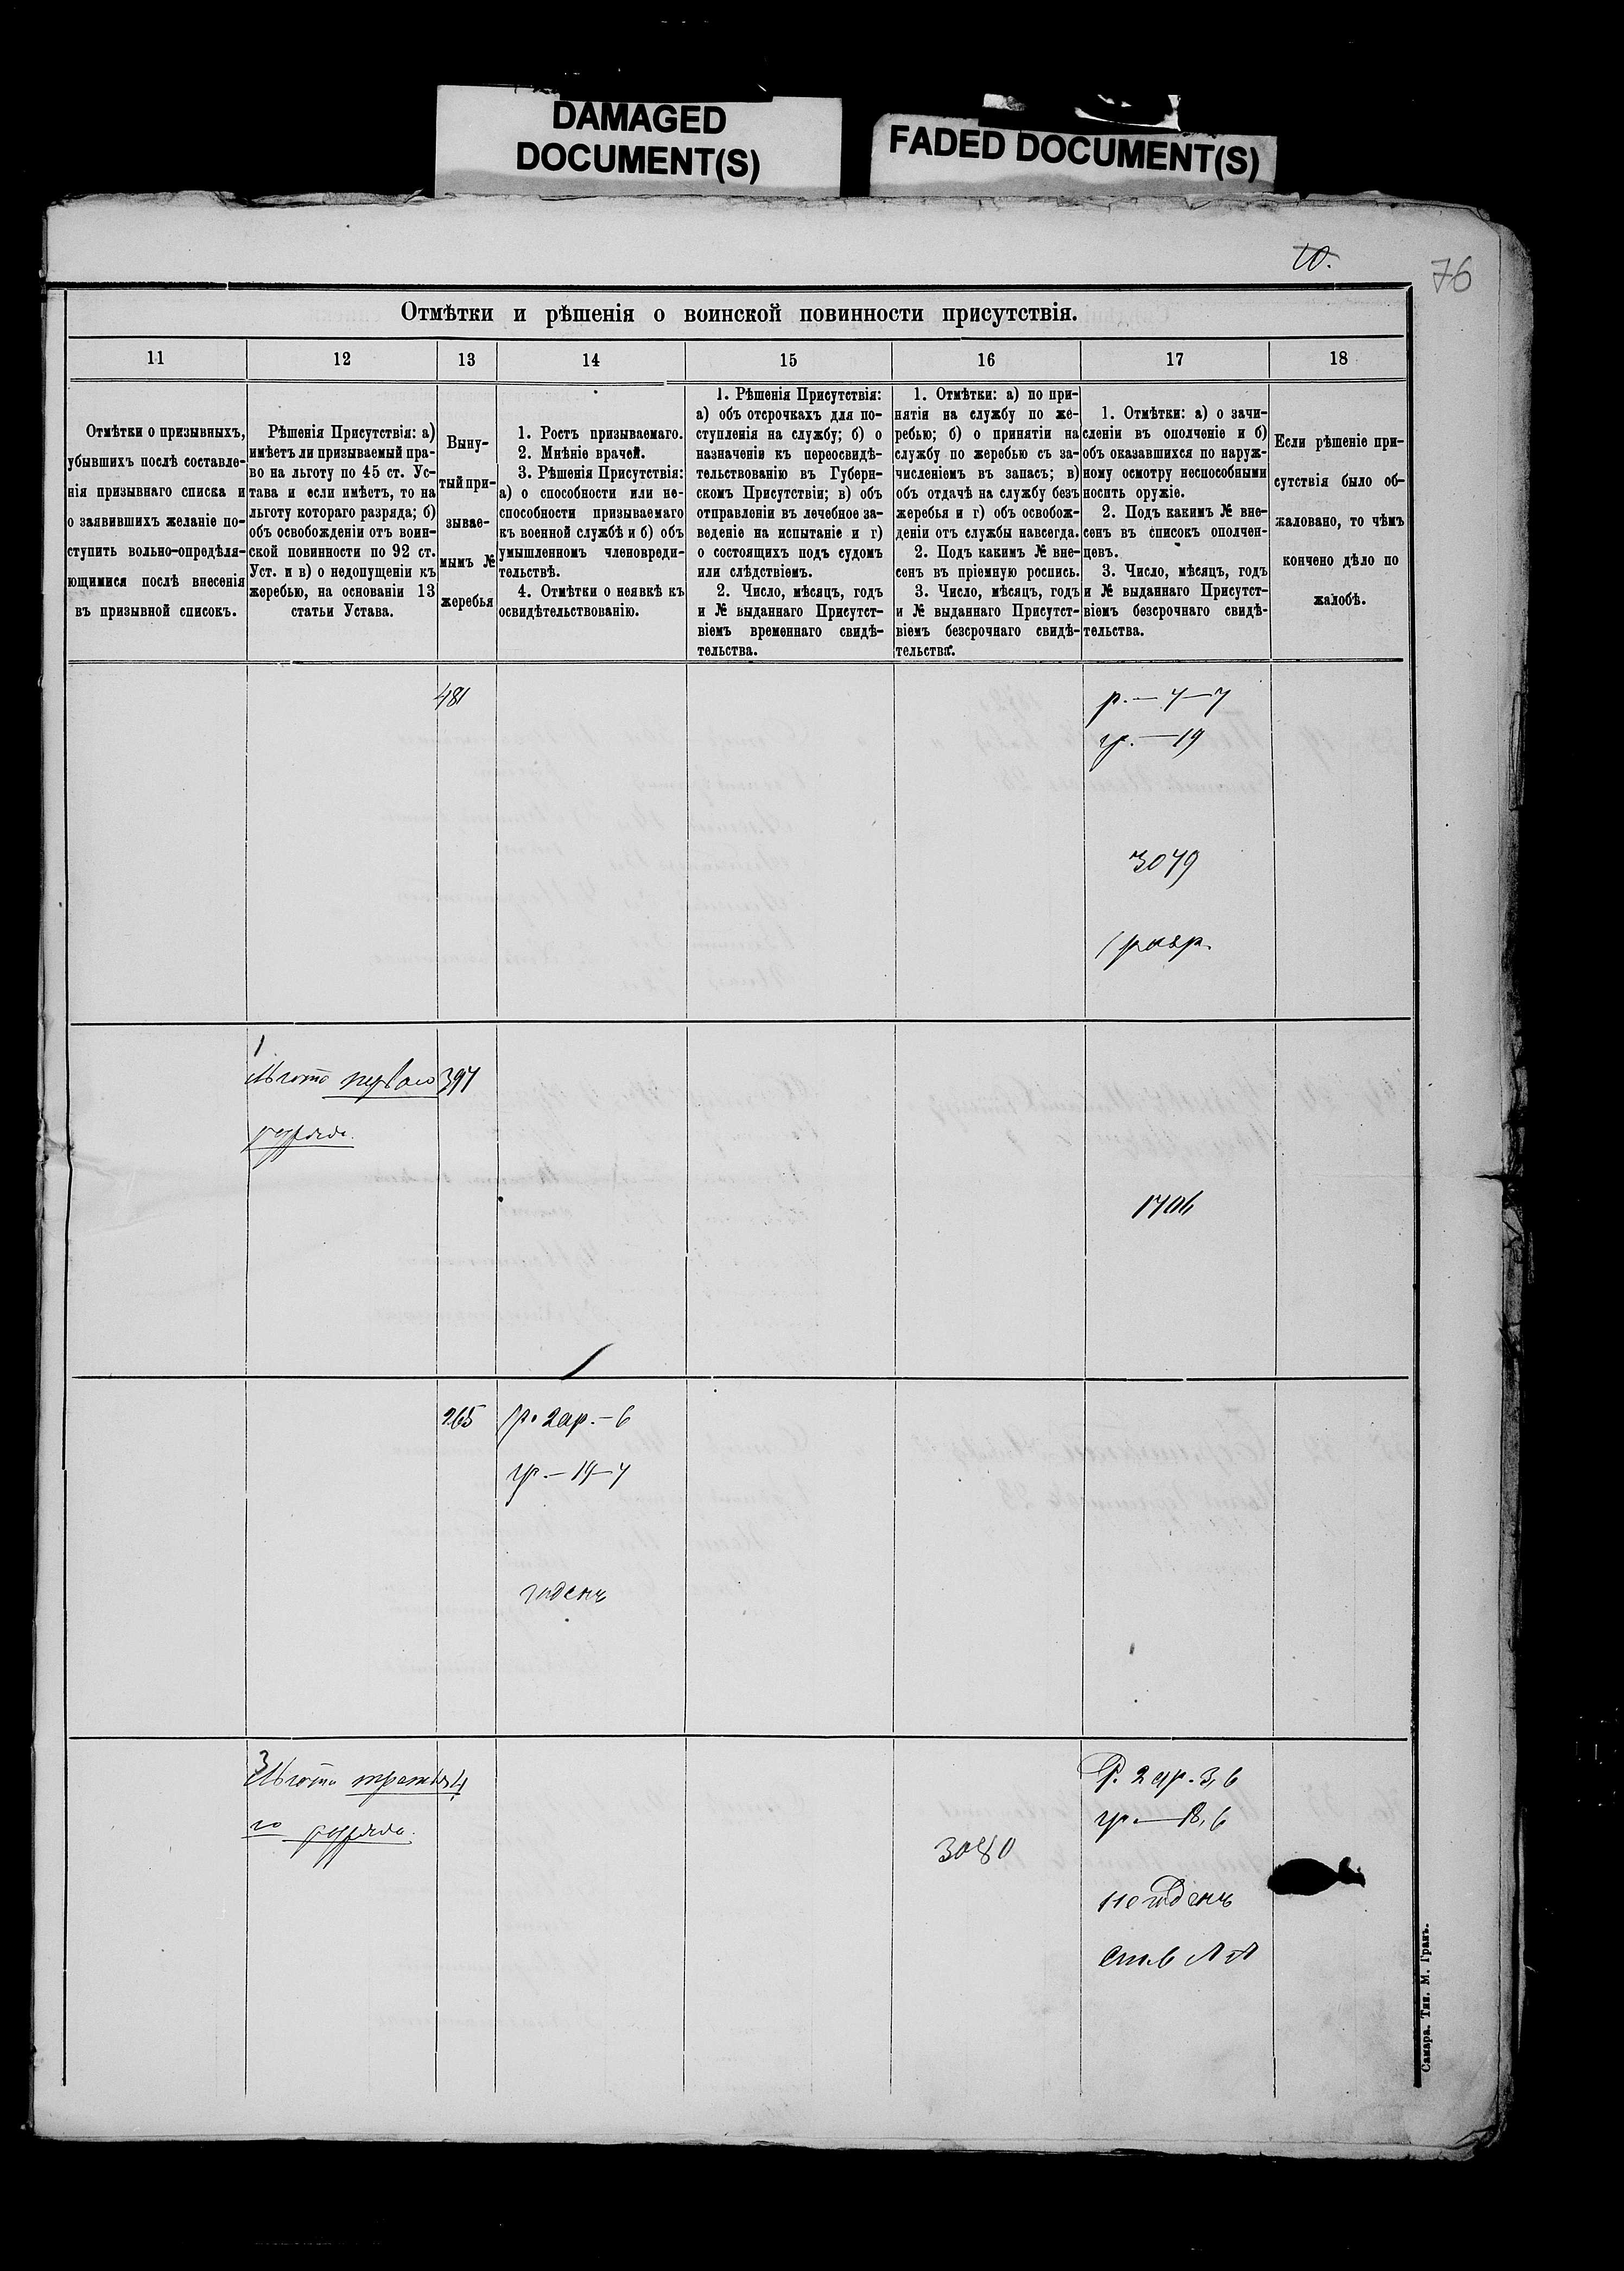 DAMAGED
DOCUMENT(S)
FADED DOCUMENT(S)
10.
76
Отмѣтки и рѣшенія о воинской повинности присутствія.
11
12
13
14
15
16
17
18
Отмѣтки о призывныхъ,
убывшихъ послѣ составле-
нія призывнаго списка и
о заявившихъ желаніе по-
ступить вольно-опредѣля-
ющимися послѣ внесенія
въ призывной списокъ.
Рѣшенія Присутствія: а)
имѣетъ ли призываемый пра-
во на льготу по 45 ст. Ус-
тава и если имѣетъ, то на
льготу котораго разряда; б)
объ освобожденіи отъ воин-
ской повинности по 92 ст.
Уст. и в) о недопущеніи къ
жеребью, на основаніи 13
статьи Устава.
Выну-
тый при-
зывае-
мымъ №
жеребья
1. Ростъ призываемаго.
2. Мнѣніе врачей.
3. Рѣшенія Присутствія:
а) о способности или не-
способности призываемаго
къ военной службѣ и б) объ
умышленномъ членовреди-
тельствѣ.
4. Отмѣтки о неявкѣ къ
освидѣтельствованію.
1. Рѣшенія Присутствія:
а) объ отсрочкахъ для по-
ступленія на службу; б) о
назначеніи къ переосвидѣ-
тельствованію въ Губерн-
скомъ Присутствіи; в) объ
отправленіи въ лечебное за-
веденіе на испытаніе и г)
о состоящихъ подъ судомъ
или слѣдствіемъ.
2. Число, мѣсяцъ, годъ
и № выданнаго Присутст-
віемъ временнаго свидѣ-
тельства.
1. Отмѣтки: а) по при-
нятіи на службу по же-
ребью; б) о принятіи на
службу по жеребью съ за-
численіемъ въ запасъ; в)
объ отдачѣ на службу безъ
жеребья и г) объ освобож-
деніи отъ службы навсегда.
2. Подъ какимъ № вне-
сенъ въ пріемную роспись.
3. Число, мѣсяцъ, годъ
и № выданнаго Присутст-
віемъ безсрочнаго свидѣ-
тельства.
1. Отмѣтки: а) о зачи-
сленіи въ ополченіе и б)
объ оказавшихся по наруж-
ному осмотру неспособными
носить оружіе.
2. Подъ какимъ № вне-
сенъ въ списокъ ополчен-
цевъ.
3. Число, мѣсяцъ, годъ
и № выданнаго Присутст-
віемъ безсрочнаго свидѣ-
тельства.
Если рѣшеніе при-
сутствія было об-
жаловано, то чѣмъ
кончено дѣло по
жалобѣ.
481
р. — 4 — 7
гр. — 19
3079
1 разр.
1
Льгота перваго
разряда.
397
1706
265
р. 2 ар. — 6
гр. — 19 — 4
годенъ
3
Льгота третья
го разряда.
4
3080
Р. 2 ар. 3,6
гр. — 18,6
не годенъ
Самара. Тип. М. Гранъ.